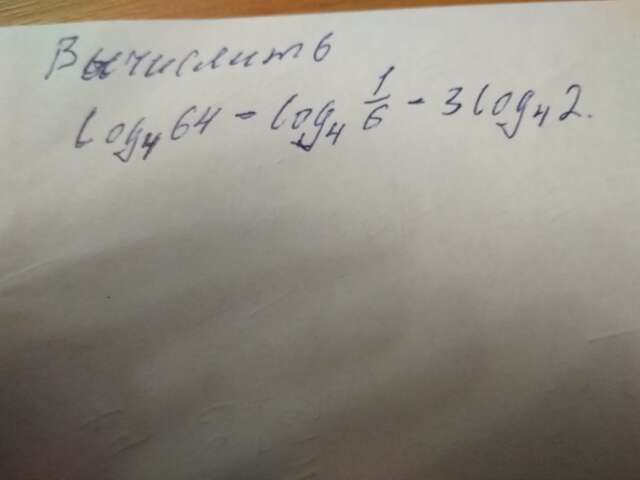 Вычислить
log₄64 - log₄ 1/6 - 3log₄2.